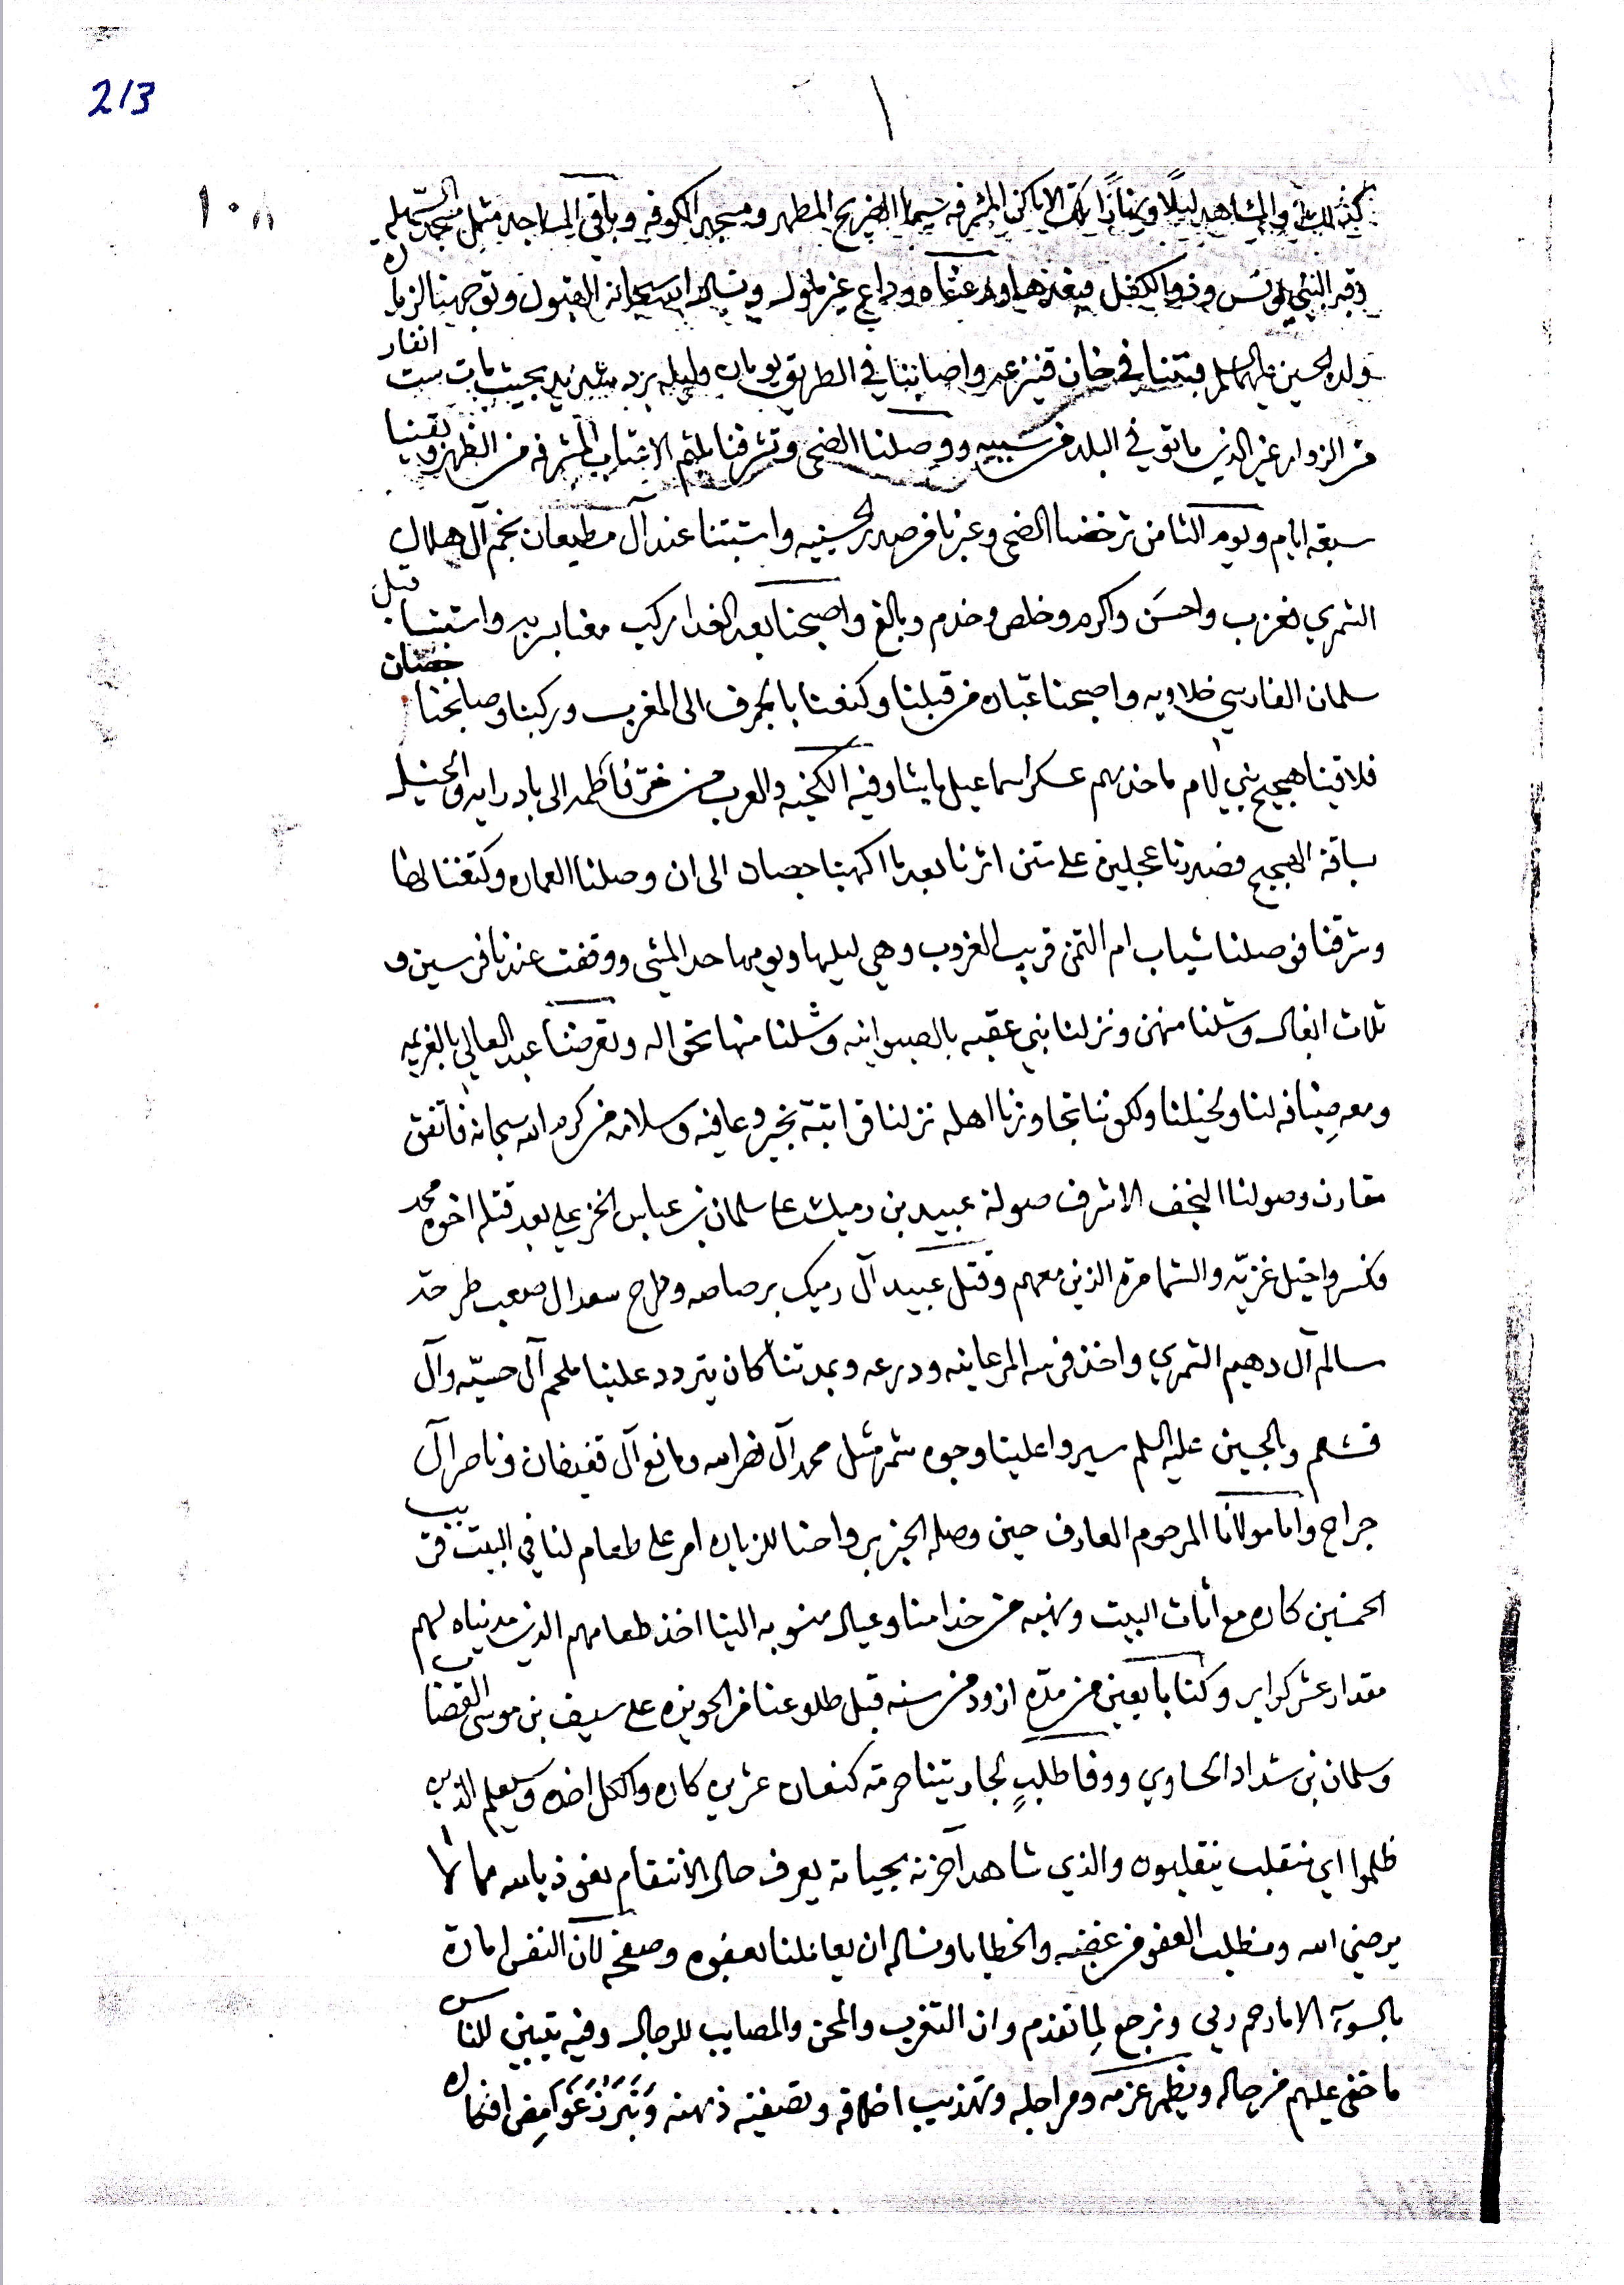 213
ليلًا ونهارًا بتلك الاماكن المشرفه سيما الضريح المطهر ومسجد الكوفه وباقي المساجد مثل مسجد السهله
وقبر النبي يونس وذو الكفل وودعناه وداع غير ملول ونسال الله سبحانه القبول وتوجهنا لزياره
ولده الحسين عليهما السلم فبتنا في خان واصابتنا في الطريق يومان وليله برد شديد بحيث مات ست انفار
من الزوار غير الذين ماتو في البلد من سببيه ووصلنا الضحى وتشرفنا بلثم الاعتاب المشرفه من الظهر وبقينا
سبعة ايام ويوم الثامن ترخصنا الضحى وعبرنا من صدر الحسينيه واستبتنا عند آل مطيعان بخيم آل هلال
الشمري فعزب واحسن واكرم وخلص وخدم وبالغ واصبحنا بعد الغدا ركب معنا واستبتنا قبل
سلمان الفارسي خلاويه واصبحنا عباره من قبلنا وكنفنا بالجرف الى المغرب وركبنا وصابحنا حصان
فلاقينا هجيج بني لام ماخذهم عسكر اسماعيل باشا وفيه الكنجيه والعرب من غر فاطمه الى بادرايه والخيل
ساقة الهجيج فصدرنا عجلين على متن اثرنا بعد ما اكهبنا حصان الى ان وصلنا العماره وكنفنا لها
وشرقنا فوصلنا شياب ام التمن قريب الغروب وهي ليلها ويومها حد المشي ووقفت عندنا فرسين و
ثلاث ابغال وشلنا منهن ونزلنا بني عقبه بالصيوانيه وشلنا منها نحو اله وتعرضنا عبد العالي بالغريبه
ومعه ضيافه لنا ولخيلنا ولكوننا تجاوزنا اهله نزلنا قرابته بخير وعافيه وسلامه من كرم الله سبحانه فاتفق
مقارن وصولنا النجف الاشرف صولة عبيد بن رميك على سلمان بن عباس الخزعلي بعد قتله اخوه محمد
فكسروا خيل غزيّه والشمامره الذين معهم وقتل عبيد آل رميك برصاصه وطرح سعد ال صعب طرحة
سالم آل دهيم الشمري واخذ فرسه المرعاينه ودرعه وبمدتنا كان يتردد علينا ملحم آل حسيّه وآل
قشعم وبالحسين عليه السلم سيروا علينا وجوه شمر مثل محمد آل نصرالله ومانع آل قعيضان وناصر آل
جراح واما مولانا المرحوم العارف حين وصله الخبر برواحنا للزياره امر على طعام لنا في البيت قريب
الخمسين كاره مع اثاث البيت ونهبه من خدامنا وعيال منسوبه الينا اخذ طعامهم الذي مدنياه لهم
مقدار عشر كراير وكنا بايعين من مدّه ازود من سنه قبل طلوعنا من الحويزه على سيف بن موسى القصاب
وسلمان بن شداد الحاوي ووفا طلبٍ لجاريتنا حرمة كنعان عشرين كاره والكل اخذه وسيعلم الذين
ظلموا اي منقلب ينقلبون والذي شاهد آخرته بحياته يعرف حال الانتقام نعوذ بالله مما لا
يرضي الله ونطلب العفو من غضبه والخطايا ونساله ان يعاملنا بعفوه وصفحه لان النفس لامارة
بالسوء الا ما رحم ربي ونرجع لِما تقدم وان التغرب والمحن والمصايب للرجال وفيه تبيين للناس
ما خفي عليهم من حاله ويظهر عزمه ومراجله وتهذيب اخلاقه وتصفية ذهنه وتبرز غوامِض افكاره